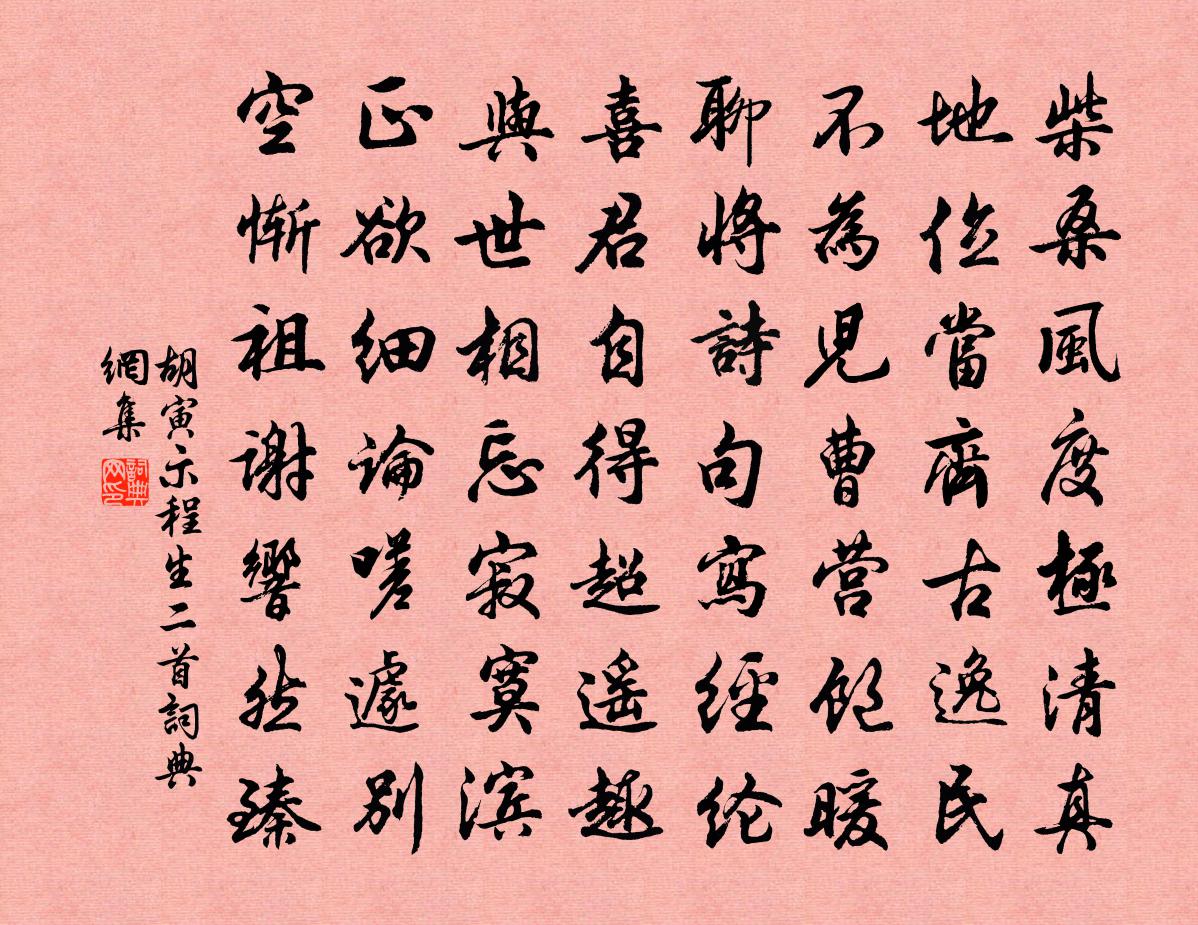 柴桑風度極清真
地位當齊古逸民
不為児曹营飽暖
聊將詩句寫經綸
喜君自得超遙趣
與世相忘寂寞濱
正欲細論嗟遽別
空慚祖謝響然臻
胡寅示程生二首詞典
網集
詞典
网印